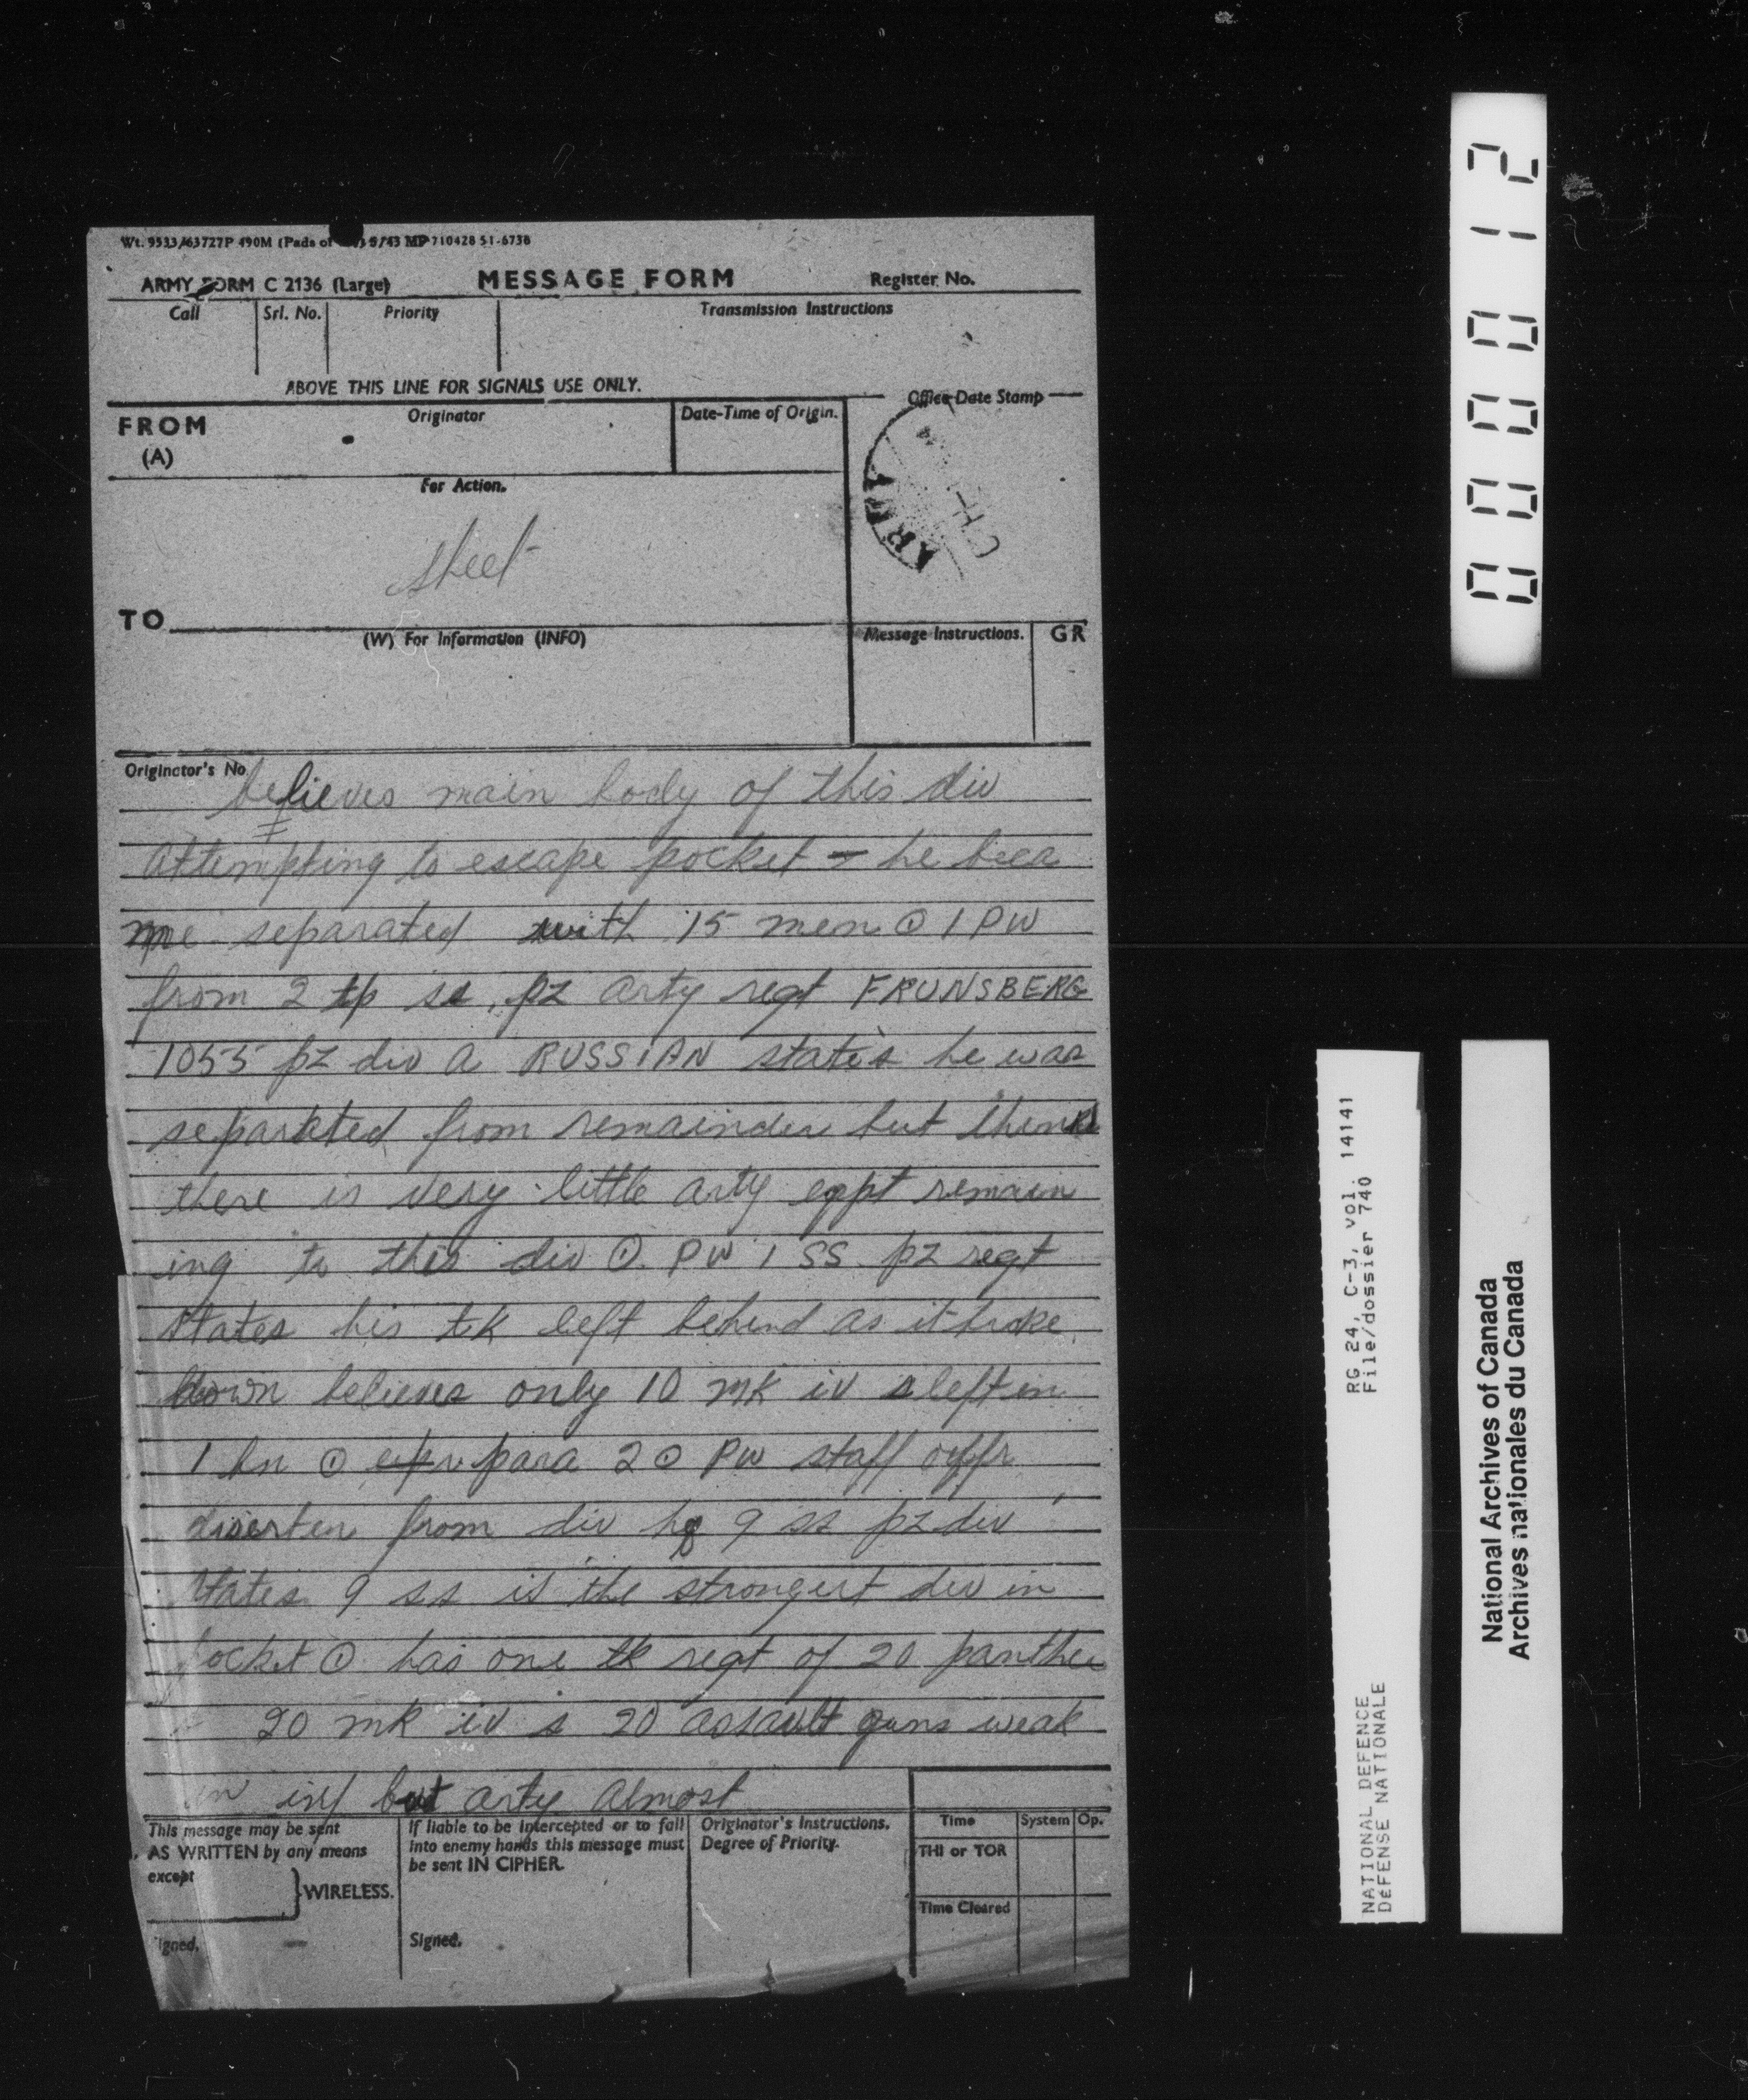 Wt. 9533/63727P 490M (Pads of 5/43 MP 710428 51-6738
ARMY FORM C 2136 (Large) MESSAGE FORM Register No.
Call Srl. No. Priority Transmission Instructions
ABOVE THIS LINE FOR SIGNALS USE ONLY.
FROM (A) Originator Date-Time of Origin. Office Date Stamp
ARMY
For Action.
sheet
TO
(W) For Information (INFO) Message Instructions. GR
Originator's No.
believes main body of this div
attempting to escape pocket - he beca
me separated with 15 men ⊙ 1 PW
from 2 tp ss pz arty regt FRUNSBERG
1055 pz div a RUSSIAN states he was
separated from remainder but thinks
there is very little arty eqpt remain
ing to this div ⊙ PW 1 SS pz regt
states his tk left behind as it broke
down believes only 10 mk iv s left in
1 bn ⊙ para 2 ⊙ PW staff offr
diserter from div hq 9 ss pz div
states 9 ss is the strongest div in
pocket ⊙ has one tk regt of 20 panther
20 mk iv s 20 assault guns weak
in inf but arty almost
This message may be sent AS WRITTEN by any means except WIRELESS.
If liable to be intercepted or to fall into enemy hands this message must be sent IN CIPHER.
Originator's Instructions. Degree of Priority.
Time System Op.
THI or TOR
Time Cleared
Signed. Signed.
000012
RG 24, C-3, vol. 14141
File/dossier 740
NATIONAL DEFENCE
DéFENSE NATIONALE
National Archives of Canada
Archives nationales du Canada